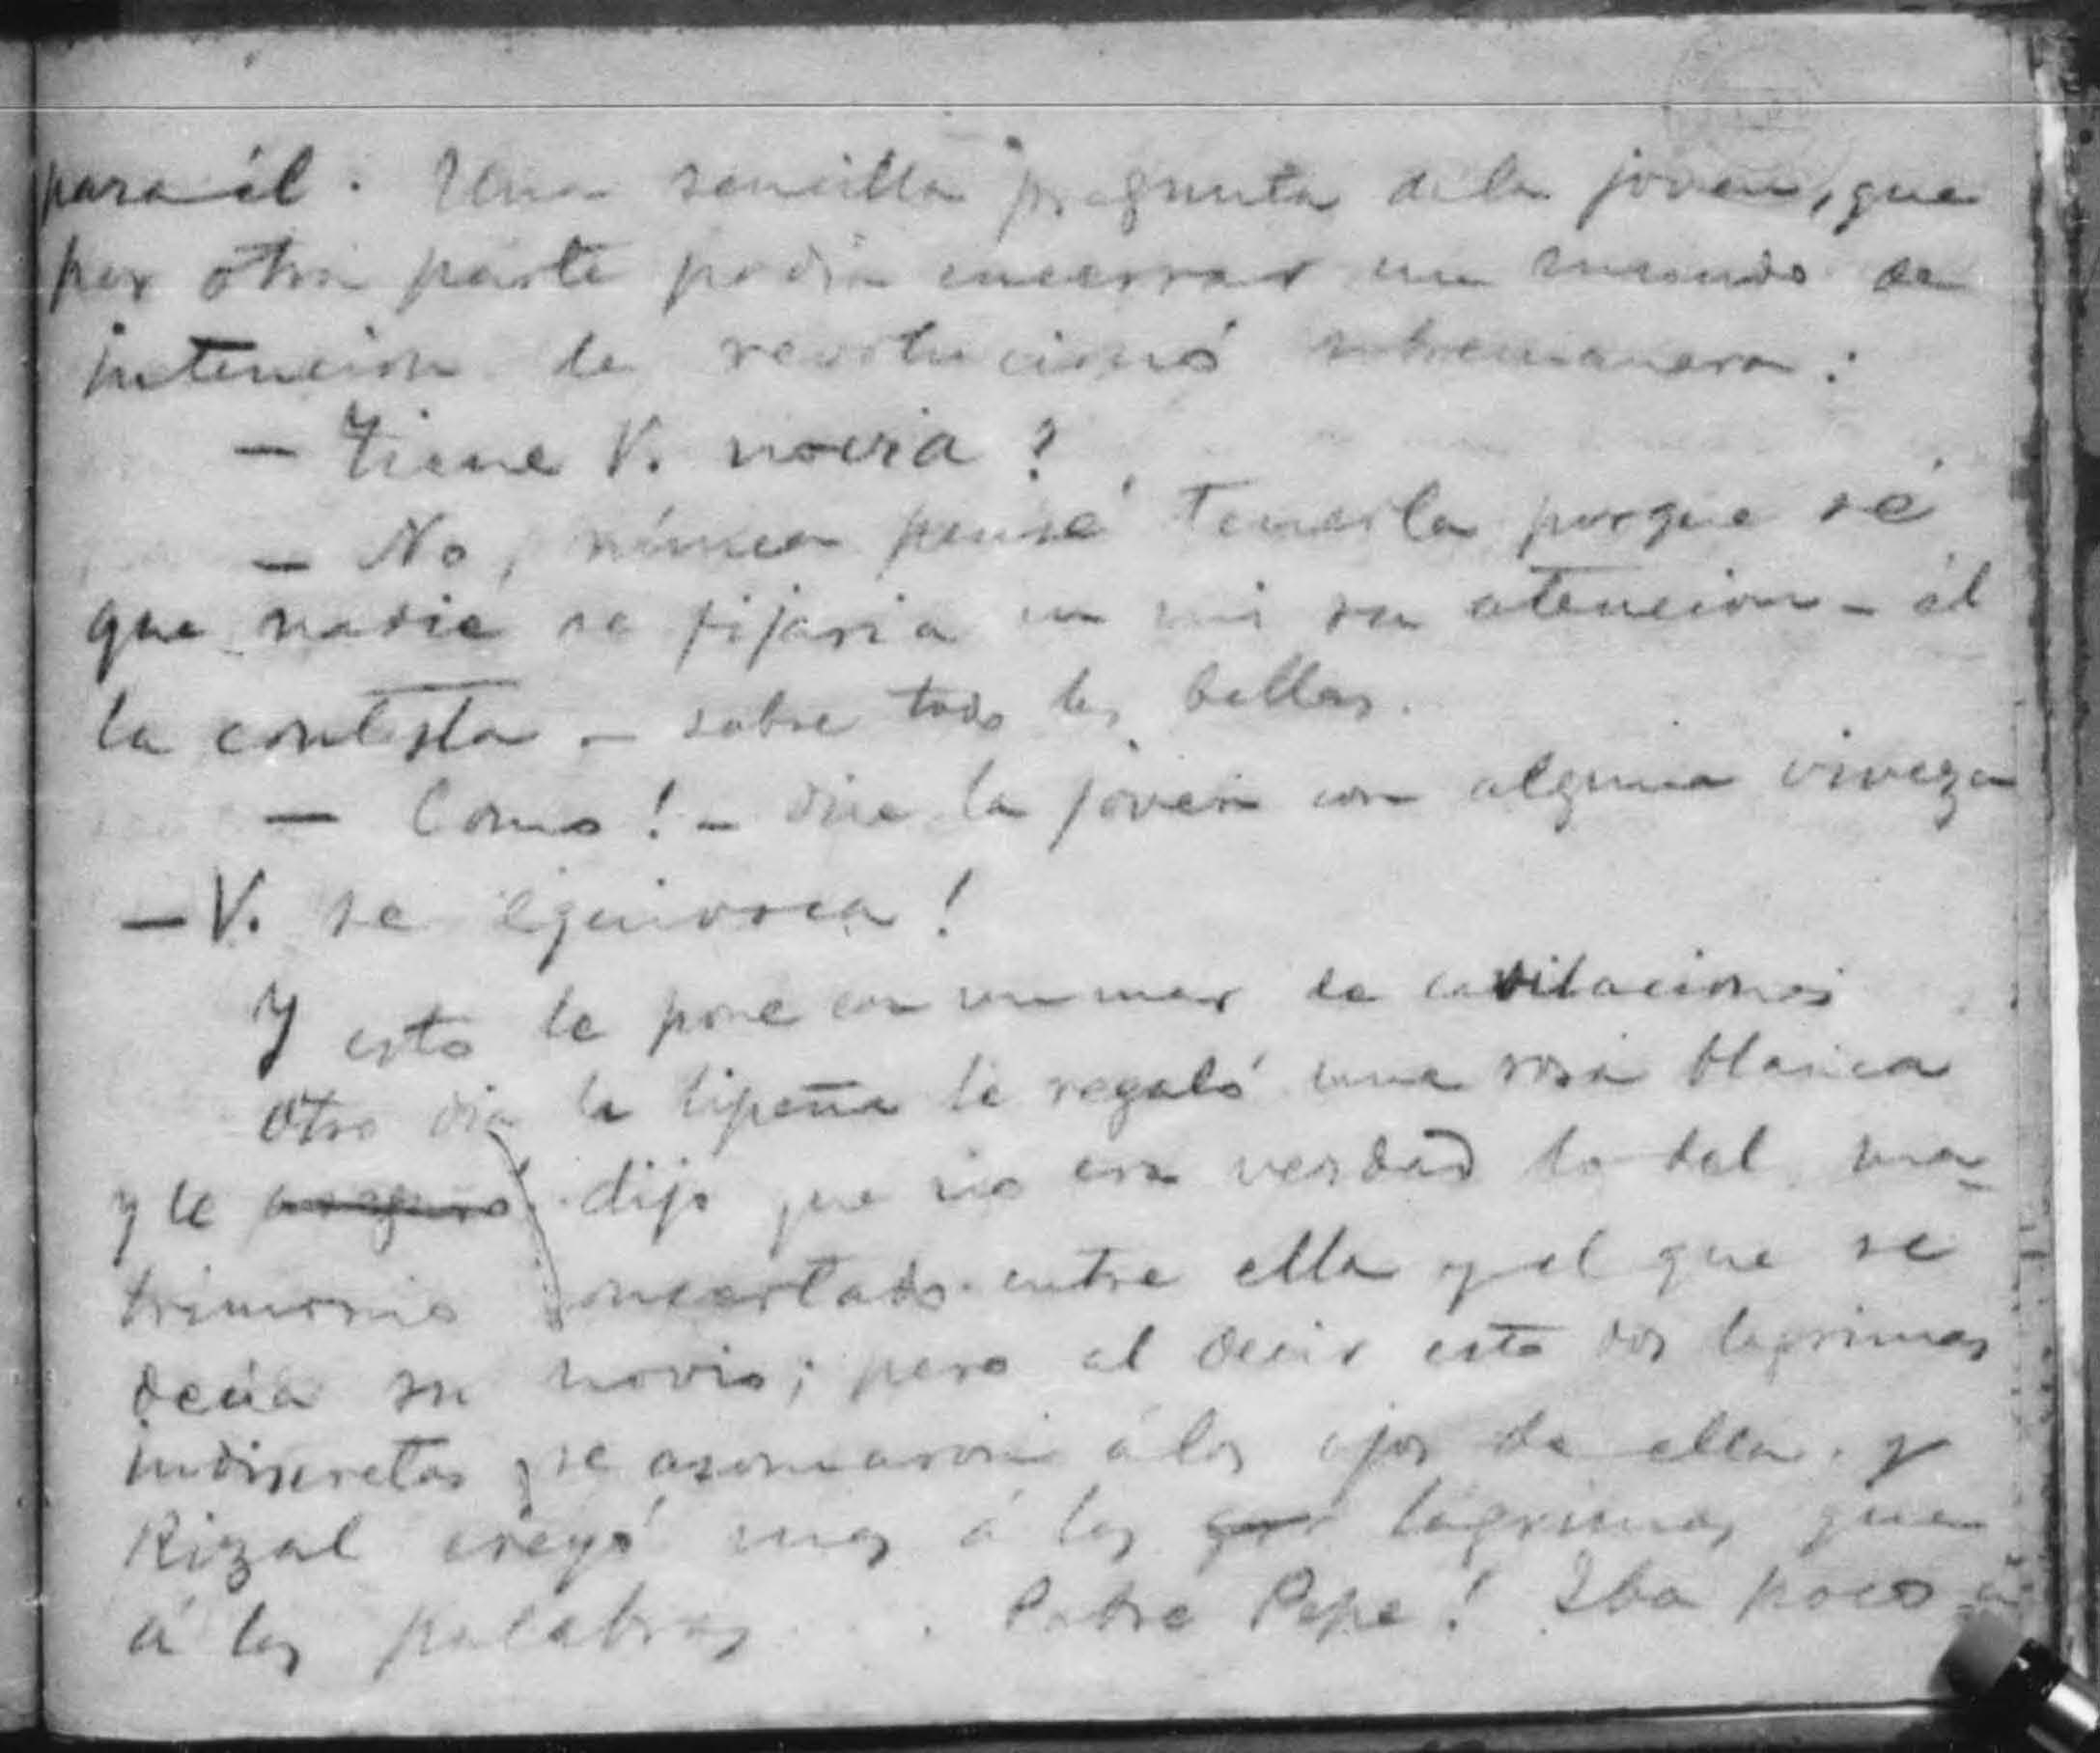 para él. Una sencilla pregunta de la joven, que
por otra parte podia encerrar un mundo de
intencion le revolucionó sobremanera:
— Tiene V. novia?
— No, núnca pensé tenerla porque sé
que nadie se fijaria en mi su atencion - él
la contesta - sobre todo las bellas.
— Como! - dice la joven con alguna viveza
— V. se equivoca!
Y esto le pone en un mar de cavilaciones
Otro dia la lipeña le regaló una rosa blanca
y le aseguró dijo que no era verdad lo del ma-
trimonio concertado entre ella y el que se
decia su novio; pero al decir esto dos lagrimas
indiscretas se asomaron á los ojos de ella y
Rizal creyó mas á las que lágrimas que
á las palabras . . . Pobre Pepe! Iba poco á